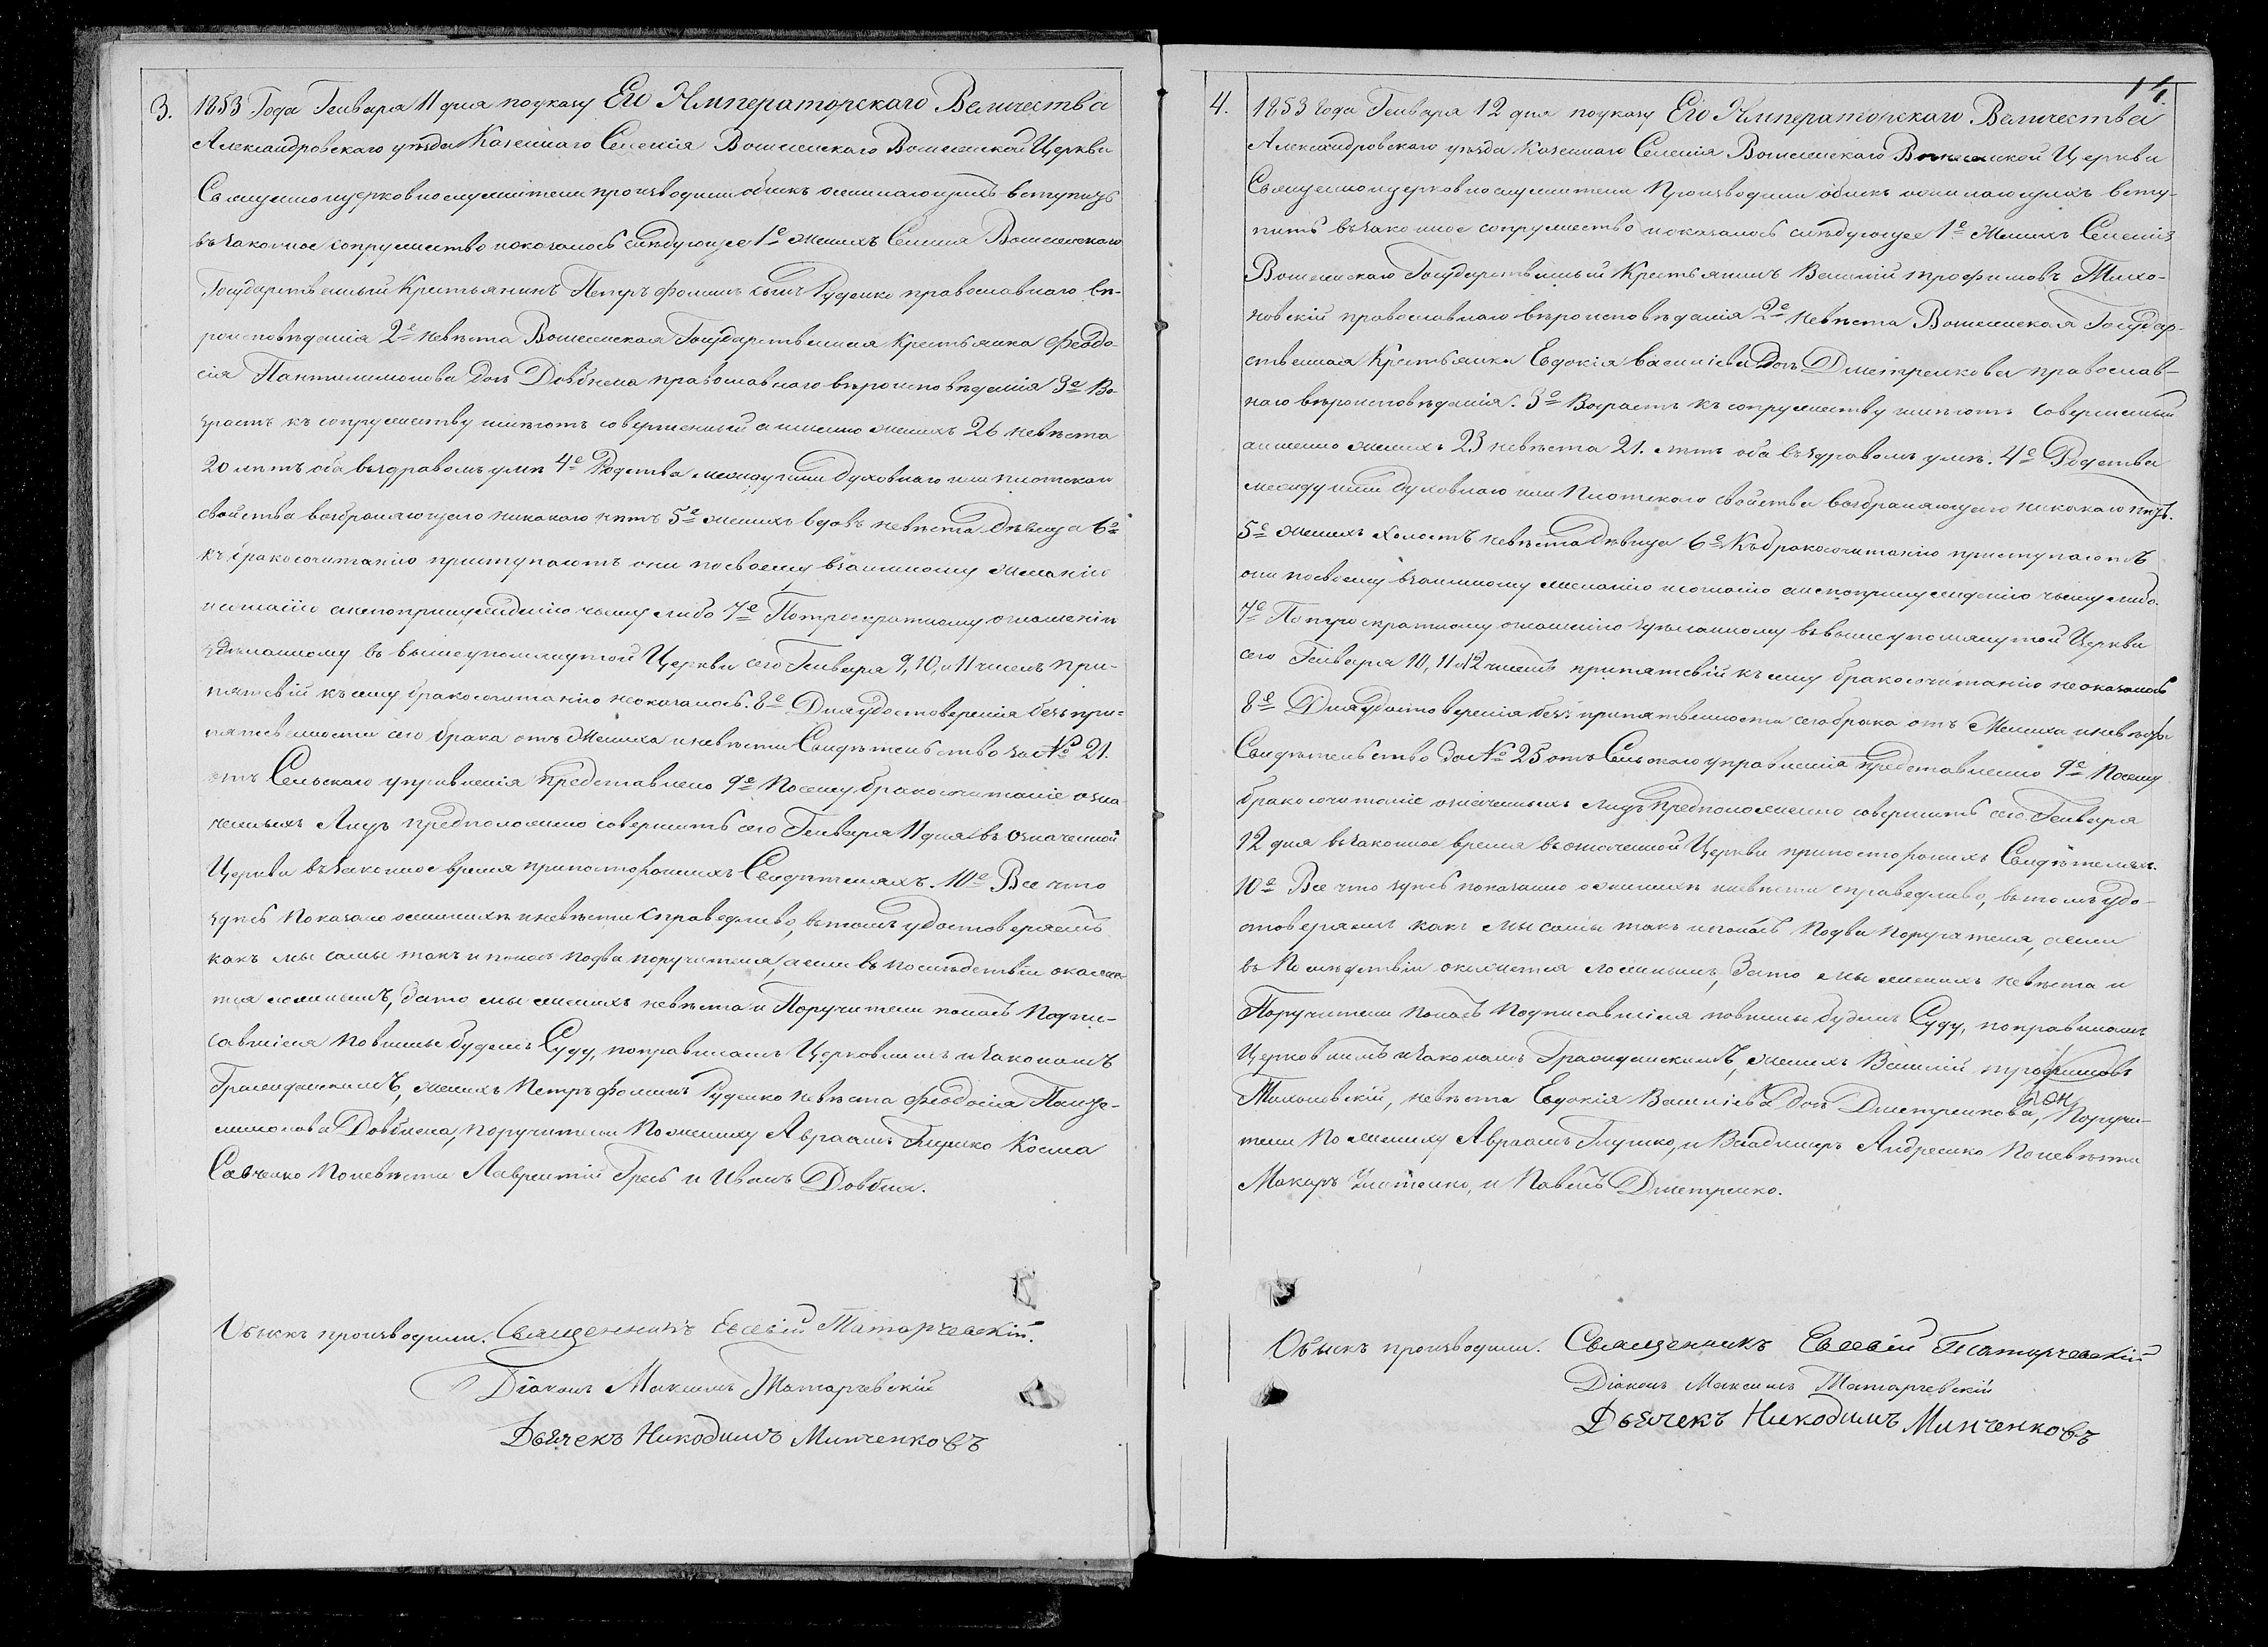 3. 1853 Года Генваря 11 дня по указу Его Императорскаго Величества
Александровскаго уѣзда Казеннаго Селенія Вошенскаго Вошенской Церкви
Священноцерковнослужители производили обыскъ о желающихъ вступить
въ законное сопружество и оказалось слѣдующее 1е Женихъ Селенія Вошенскаго
Государственный Крестьянинъ Петръ Фоминъ сынъ Руденко православнаго вѣ-
роисповѣданія 2е Невѣста Вошенская Государственная Крестьянка Феодо-
сія Пантилимонова дочь Довбнева православнаго вѣроисповѣданія 3е Во-
зрастъ къ сопружеству имѣютъ совершенный а именно женихъ 26 невѣста
20 лѣтъ оба въ здравомъ умѣ 4е Родства между ними духовнаго или плотскаго
свойства возбраняющаго никакого нѣтъ 5е женихъ вдовъ невѣста дѣвица 6е
къ бракосочитанію приступаютъ они по своему взаимному желанію
и согласію а не по принужденію чьему либо 7е По троекратному оглашенію
здѣланному въ вышеупомянутой Церкви сего Генваря 9, 10, и 11 чиселъ при-
пятствій къ сему бракосочитанію не оказалось. 8е Для удостоверенія безъ при-
пятственности сего брака отъ Жениха и невѣсты Свидѣтельство за № 21.
отъ Сельскаго управленія представлено 9е По сему бракосочитаніе озна-
ченныхъ Лицъ предположено совершить сего Генваря 11 дня въ означенной
Церкви въ законное время при постороннихъ Свидѣтеляхъ. 10е Все что
здѣсь показано о женихѣ и невѣсти справедливо, въ томъ удостоверяемъ
какъ мы самы такъ и по насъ подва поручителя, а если въ послѣдствіи окажи-
тся ложнымъ, за то мы женихъ невѣста и Поручители по насъ Подпи-
савшіеся повинны будемъ Суду, по правиламъ Церковнымъ и законамъ
Гражданскимъ, женихъ Петръ Фоминъ Руденко невѣста Феодосія Панте-
лимонова Довбнева, поручители По жениху Авраамъ Глушко Косма
Савченко По невѣсти Лаврентій Гресь и Иванъ Довбня.
Обыскъ производили. Священникъ Евсевій Татарчевскій.
Діаконъ Максимъ Татарчевскій
Дьячекъ Никодимъ Минченковъ
14.
4. 1853 года Генваря 12 дня по указу Его Императорскаго Величества
Александровскаго уѣзда Казеннаго Селенія Вошенскаго Вошенской Церкви
Священноцерковнослужители Производили обыскъ о желающихъ всту-
пить въ законное сопружество и оказалось слѣдующее 1е Женихъ Селенія
Вошенскаго Государственный Крестьянинъ Василій Трофимовъ Тихо-
новскій православнаго вѣроисповѣданія 2е Невѣста Вошенская Государ-
ственная Крестьянка Евдокія Василіева Дочь Дметренкова православ-
наго вѣроисповѣданія. 3е Возрастъ къ сопружеству имѣютъ совершенный
а именно женихъ 23 невѣста 21. лѣтъ оба въ здравомъ умѣ. 4е Родства
между ними духовнаго или Плотскаго свойства возбраняющаго никакого нѣтъ.
5е Женихъ холостъ невѣста дѣвица 6е Къ бракосочитанію приступаютъ
они по своему взаимному желанію и согласію а не по принужденію чьему либо.
7е По троекратному оглашенію здѣланному въ вышеупомянутой Церкви
сего Генваря 10, 11 и 12 чиселъ припятствій къ сему бракосочитанію не оказалось
8е Для удостоверенія безъ припятственности сего брака отъ Жениха и невѣсты
Свидѣтельство За № 25 отъ Сельскаго управленія представленно 9е По сему
бракосочитаніе означенныхъ лицъ Предположенно совершить сего Генваря
12 дня въ законное время въ означенной Церкви при постороннихъ Свидѣтеляхъ.
10е Все что здѣсь показанно о женихѣ и невѣсти справедливо, въ томъ удо-
стоверяемъ какъ мы самы такъ и по насъ Подва Поручителя, а если
въ Послѣдствіи окажется ложнымъ, За то мы женихъ невѣста и
Поручители по насъ Подписавшіеся повинны будемъ Суду, по правиламъ
Церковнымъ и законамъ Гражданскимъ, женихъ Василій Трофимовъ
Тихоновскій, невѣста Евдокія Василіева дочь Дметренкова, Поручи-
тели По жениху Авраамъ Глушко, и Владимиръ Андренко По невѣсти
Макаръ и Павелъ Дметренко.
Обыскъ производили. Священникъ Евсевій Татарчевскій
Діаконъ Максимъ Татарчевскій
Дьячекъ Никодимъ Минченковъ